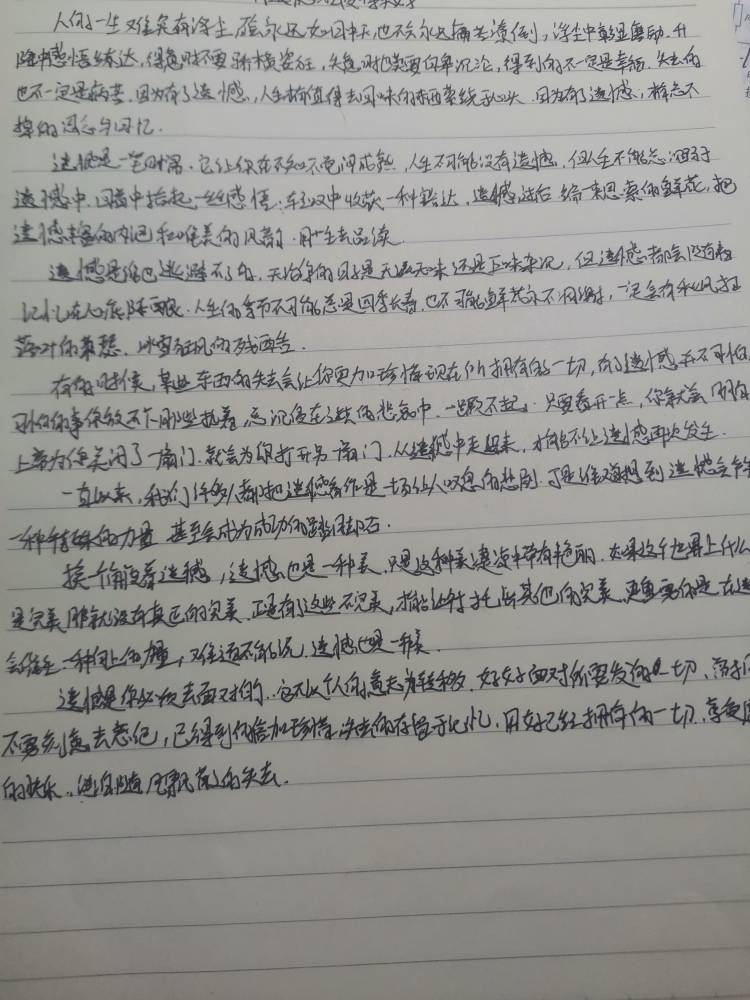 人的一生难免有浮尘,不会永远如日中天也不会永远痛苦潦倒,浮尘中
感悟练达,得意时不要骄横姿狂,失意时也莫要自卑沉沦,得到的不一定是幸福,失去的
也不一定是痛苦,因为有了遗憾,人生才有值得去回味的东西萦绕于心头,因为有了遗憾,才有忘不
掉的思念与回忆.
遗憾是一笔财富.它让你在不知不觉间成熟,人生不可能没有遗憾,但人生不能总沉溺于
遗憾中,回首中拾起一丝感悟,手中收获一种豁达,遗憾过后给一束思索的鲜花,把
遗憾丰富的内心和唯美的风韵.用一生去品读.
遗憾是谁也逃避不了的.无论你的日子是无滋无味还是五味杂陈,但遗憾都会随着
记忆在心底.人生的季节不可能总是四季长春,也不可能鲜花永不凋谢,一定会有秋风扫
落叶的萧瑟,冰雪狂风的残酷.
有的时候,某些东西的失去会让你更加珍惜现在所拥有的一切,有了遗憾并不可怕,
可怕的事你放不下那些执着,总沉浸在过去的悲哀中,一蹶不起.只要看开一点,你就会
上帝为你关闭了一扇门,就会为你打开另一扇门.从遗憾中走出来,才能不让遗憾再次发生.
一直以来,我们许多人都把遗憾看作是一场给人叹息的悲剧.可是谁曾想到遗憾会
一种特殊的力量 甚至会成为成功的踏脚石.
换个角度看遗憾,遗憾也是一种美.只是这种美凄凉中带有艳丽.如果这个世界上什么
是完美 那就没有真正的完美.正是有了这些不完美,才能衬托出其他的完美.更重要的是在遗
会催生一种向上的力量,难道不能说.遗憾也是一种美.
遗憾是你必须去面对的.它不以个人的意志为转移.好好面对所要发生的一切,
不要刻意去忘记,已得到的倍加珍惜,失去的存留于记忆,用好已经拥有的一切.享受
的快乐,随风飘落的失去.